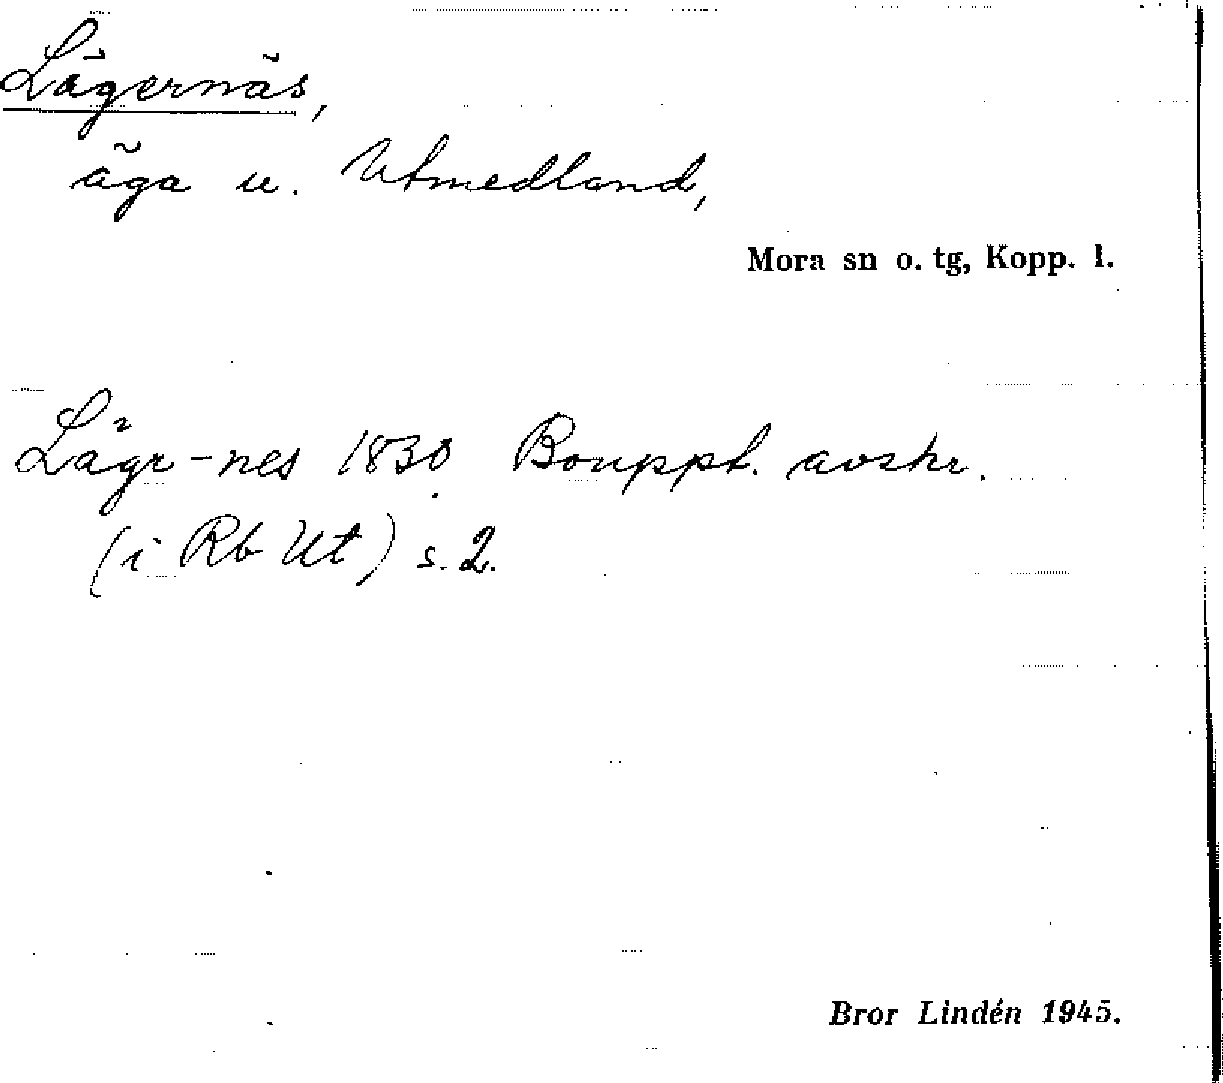 Lägernäs,
äga u. Utmedland,
Mora sn o. tg, Kopp. l.
Lägr-nes 1830 Bouppt. avskr.
(i Rb Ut) s. 2.
Bror Lindén 1945.